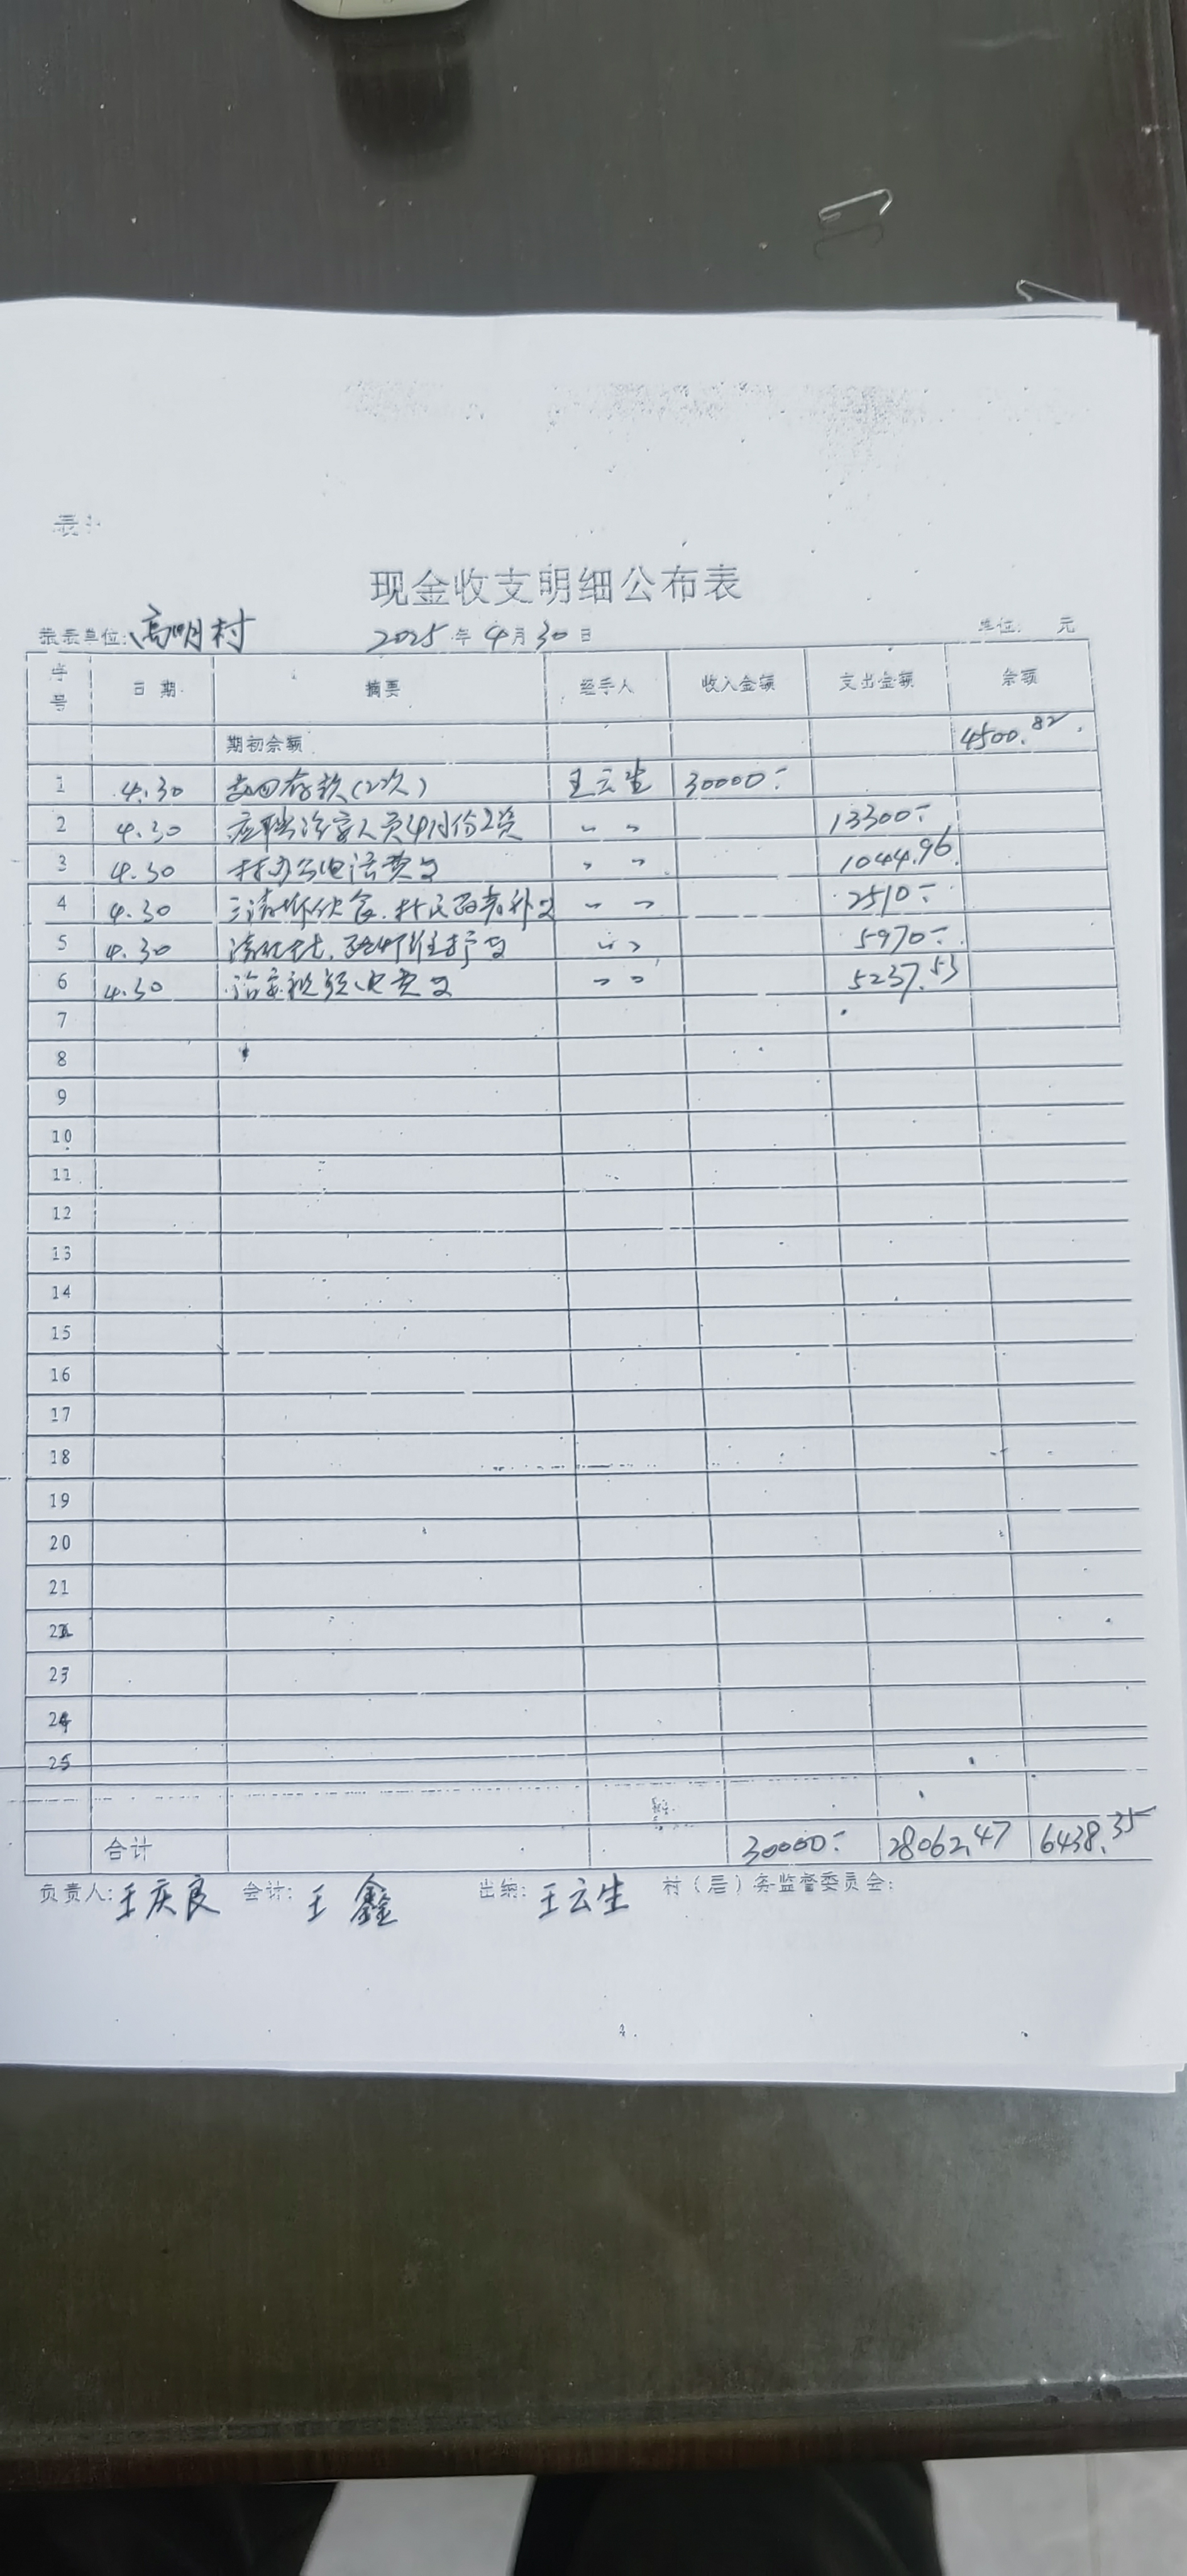 现金收支明细公布表
单位: 高明村 2025年4月30日 单位: 元
序号 日期 摘要 经手人 收入金额 支出金额 余额
期初余额 4500.82
1 4.30 存款(2次) 王云生 30000.-
2 4.30 应聘治安人员4月份工资 〃 13300.-
3 4.30 村办公电话费支 〃 1044.96
4 4.30 伙食、村民 补支 〃 2510.-
5 4.30 维护支 〃 5970.-
6 4.30 治安视频电费支 〃 5237.53
7
8
9
10
11
12
13
14
15
16
17
18
19
20
21
22
23
24
25
合计 30000.- 28062.47 6438.35
负责人: 王庆良 会计: 王鑫 出纳: 王云生 村(居)务监督委员会: